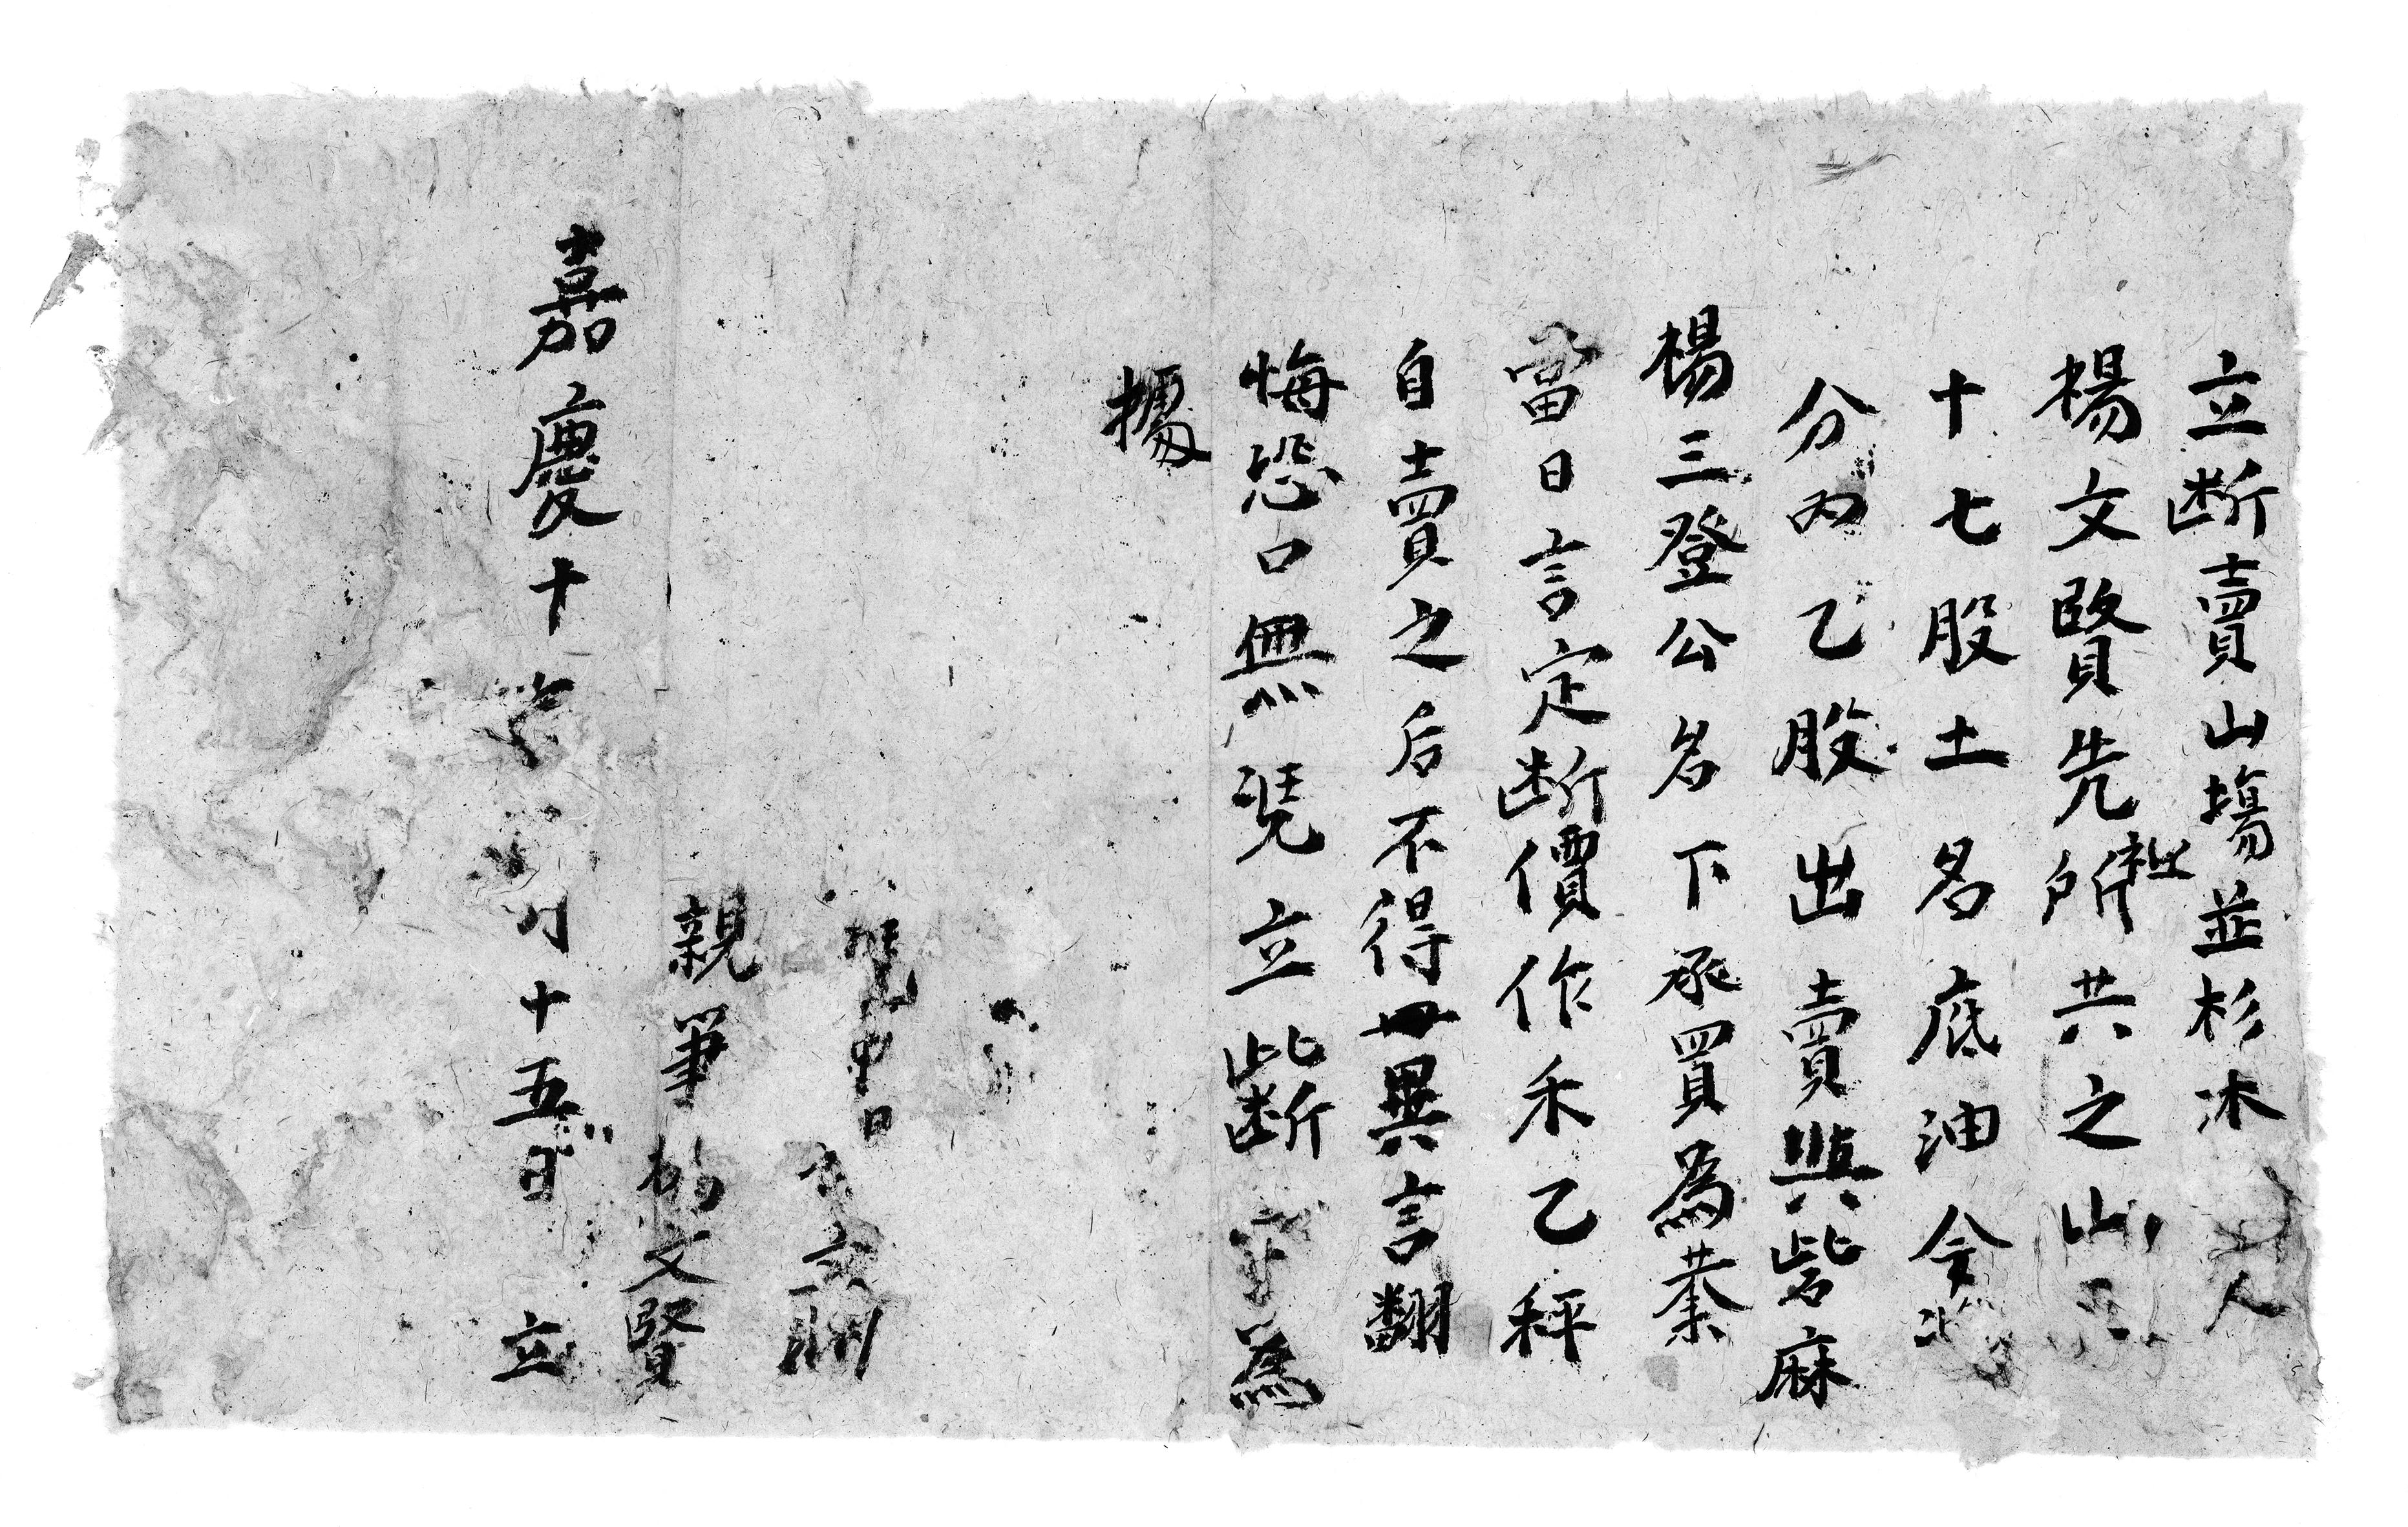 立断賣山塲並杉木人
楊文賢先祖所共之山
十七股土名底油今將
分內乙股出賣與砦麻
楊三登公名下承買為業
當日言定断價作禾乙秤
自賣之后不得異言翻
悔恐口無凴立此断字為
據
凴中日
文朝
親筆楊文賢
嘉慶十 年 月十五日立